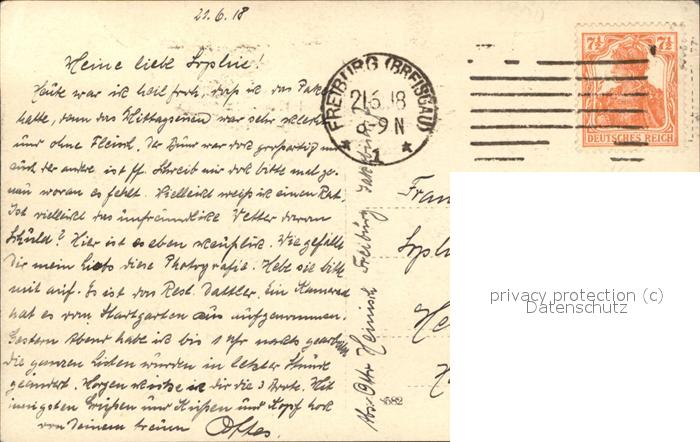 21.6.18
Meine liebe Sophie!
Heute war ich heilfroh, daß ich das Paket
hatte, denn das Mittagessen war sehr schlecht
und ohne Fleisch. Der war doch großartig und
auch der andere ist ff. Schreib mir doch bitte mal ge-
nau woran es fehlt. Vielleicht weiß ich einen Rat.
Ist vielleicht das unfreundliche Wetter daran
Schuld? Hier ist es eben Wie gefällt
Dir mein Liebs diese Photografie. Hebe sie bitte
mit auf. Es ist das Rest. Dattler. Ein Kamerad
hat es vom Stadtgarten aus aufgenommen.
Gestern Abend habe ich bis 1 Uhr nachts gearbeitet
die ganzen Listen wurden in letzter Stunde
geändert. Morgen schicke ich dir die 3 Brote. Mit
innigsten Grüßen und Küßen und Kopf hoch
von Deinem treuen Ottes.
FREIBURG (BREISGAU)
21.6.18
8-9 N
1
7½ 7½
DEUTSCHES REICH
Abs. Otto Heinisch Freiburg
Frau
Soph
He
H
582
privacy protection (c)
Datenschutz